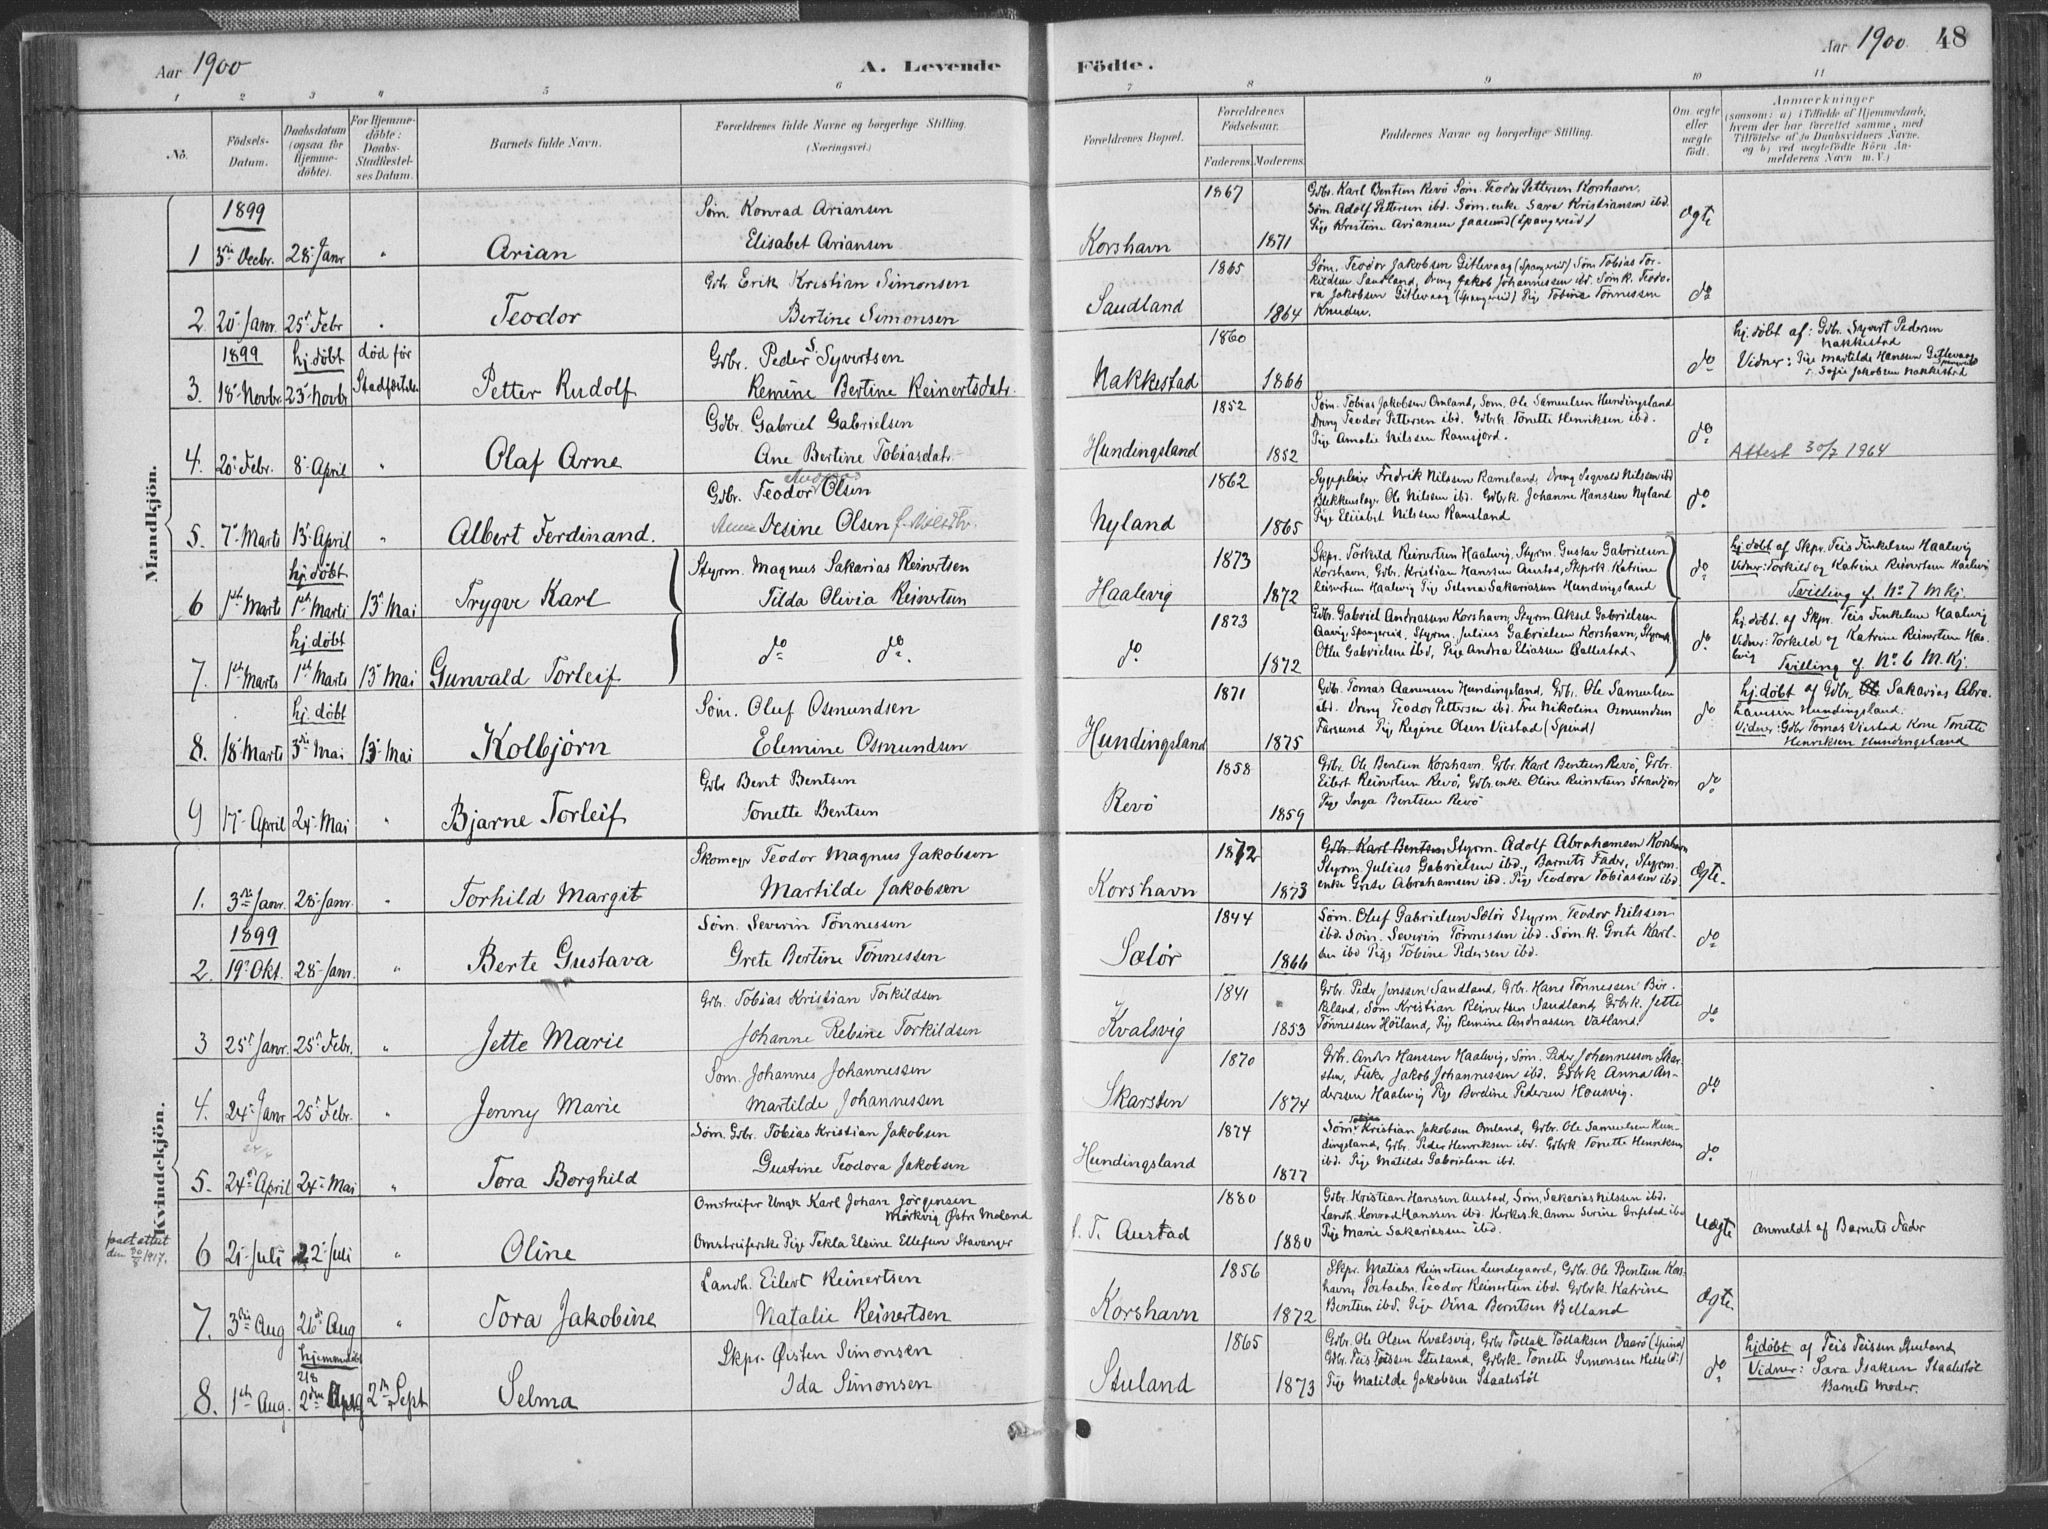 Aar 1900
A. Levende Födte.
Aar 1900. 48
1 2 3 4 5 6 7 8 9 10 11
No.
Födsels-Datum.
Daabsdatum (ogsaa for Hjemmedöbte).
For Hjemmedöbte: Daabs-Stadfæstelses Datum.
Barnets fulde Navn.
Forældrenes fulde Navne og borgerlige Stilling. (Næringsvei.)
Forældrenes Bopæl.
Forældrenes Födselsaar.
Faderens. Moderens.
Faddernes Navne og borgerlige Stilling.
Om ægte eller uægte födt.
Anmærkninger
(saasom: a) i Tilfælde af Hjemmedaab, hvem der har forrettet samme, med Tilföielse af to Daabsvidners Navne. og b) ved uægtefödte Börn Anmelderens Navn m. V.)
Mandkjön.
1 1899 3die Decbr. 28 Janr " Arian
Søm. Konrad Ariansen
Elisabet Ariansen
Korshavn 1867 1871
Gdbr. Karl Bentsen Revø Søm. Teodor Pettersen Korshavn.
Søm Adolf Pettersen ibd. Søm. enke Sara Kristiansen ibd.
Pige Kristine Ariansen Jaasund (Spangereid)
Ægte
2 20 Janr. 25 Febr " Teodor
Gdbr. Erik Kristian Simonsen
Bertine Simonsen
Saudland 1865 1864
Søm. Teodor Jakobsen Gitlevaag (Spangereid) Søm Tobias Torkildsen Saudland, Dreng Jakob Johannessen ibd. Søm k. Teodora Jakobsen Gitlevaag (Spangereid) Pige Tobine Tønnessen
do
3. 1899 18 Novbr. hj. døbt 23 Novbr død før Stadfæstelse Petter Rudolf
Gdbr. Peder S. Syvertsen
Remine Bertine Reinertsdatr.
Nakkestad 1860 1866
do
hj. døbt af: Gdbr. Syvert Pedersen Nakkestad
Vidner: Pige Martilde Hansen Gitlevaag
Sofie Jakobsen Nakkestad
4. 20 Febr. 8 April " Olaf Arne
Gdbr. Gabriel Gabrielsen
Ane Bertine Tobiasdatr.
Hundingsland 1852 1852
Søm. Tobias Jakobsen Omland, Søm. Ole Samuelsen Hundingsland
Dreng Teodor Pettersen ibd. Gdbrk. Tonette Henriksen ibd.
Pige Amalie Nilssen Ramsjord.
do
Attest 30/7 1964
5. 7 Marts 13 April " Albert Ferdinand.
Gdbr. Teodor Olsen
Desine Olsen
Nyland 1862 1865
Fredrik Nilssen Rameland, Dreng Segvald Nilssen ibd
Blekkenslager Ole Nilsen ibd. Gdbrk. Johanne Hanssen Nyland
Pige Elisabet Nilssen Rameland
do
6 1ste Marts hj. døbt 1ste Marts 13 Mai Trygve Karl
Styrm. Magnus Sakarias Reinertsen
Tilda Olivia Reinertsen
Haalevig 1873 1872
Skpr. Torkild Reinertsen Haalvig, Styrm. Gustav Gabrielsen
Korshavn, Gdbr. Kristian Hanssen Austad, Skprk. Katrine
Reinertsen Haalvig Pige Selma Sakariasen Hundingsland
do
hj. døbt af Skpr. Teis Finkelsen Haalvig
Vidner: Torkild og Katrine Reinertsen Haalvig
Tvilling af No 7 M kj.
7. 1ste Marts hj. døbt 1ste Marts 13 Mai Gunvald Torleif
do do.
do. 1873 1872
Gdbr. Gabriel Andreassen Korshavn, Styrm. Aksel Gabrielsen
Aavig, Spangereid, Styrm. Julius Gabrielsen Korshavn, Styrmk
Otlu Gabrielsen ibd, Pige Andrea Eliassen Ballestad
do.
hj. døbt. af Skpr. Teis Finkelsen Haalvig
Vidner: Torkeld og Katrine Reinertsen Haalvig
Tvilling af No 6 M. Kj.
8. 18 Marts hj. døbt 3die Mai 13 Mai Kolbjørn
Søm. Oluf Osmundsen
Elemine Osmundsen
Hundingsland 1871 1875
Gdbr. Tomas Aanensen Hundingsland, Gdbr. Ole Samuelsen
ibd. Dreng Teodor Pettersen ibd. Fru Nikoline Osmundsen
Farsund Pige Regine Olsen Viestad (Spind)
do
hj. døbt af Gdbr. Sakarias Abrahamsen Hundingsland.
Vidner: Gdbr Tomas Viestad Kone Tonette
Henriksen Hundingsland
9 17 April 24 Mai " Bjarne Torleif
Gdbr Bent Bentsen
Tonette Bentsen
Revø 1858 1859
Gdbr. Ole Bentsen Korshavn, Gdbr. Karl Bentsen Revø, Gdbr.
Eilert Reinertsen Revø, Gdbr. enke Oline Reinertsen
Pige Inga Bentsen Revø
do
Kvindekjön.
1. 3die Janr. 28 Janr. " Torhild Margit
Skomagr Teodor Magnus Jakobsen
Martilde Jakobsen
Korshavn 1872 1873
Gdbr. Karl Bentsen Styrm. Adolf Abrahamsen Korshavn
Styrm Julius Gabrielsen ibd., Barnets Fader, Styrm.
enke Grete Abrahamsen ibd. Pige Teodora Tobiassen ibd.
Ægte.
2. 1899 19 Okt. 28 Janr. " Berte Gustava
Søm. Severin Tønnessen
Grete Bertine Tønnessen
Sælør 1844 1866
Søm. Oluf Gabrielsen Sælør Styrm. Teodor Nilssen
ibd. Søm. Severin Tønnessen ibd. Søm. k. Grete Karlsen ibd Pige Tobine Pedersen ibd.
do
3 25 Janr. 25 Febr. " Jette Marie
Gdbr. Tobias Kristian Torkildsen
Johanne Rebine Torkildsen
Kvalsvig 1841 1853
Gdbr. Peder Jenssen Saudland, Gdbr. Hans Tønnessen Birkeland, Søm Kristian Reinertsen Saudland, Gdbrk. Jette
Tønnessen Høiland, Pige Remine Andreassen Vatland.
do
4. 24 Janr 25 Febr. " Jenny Marie
Søm. Johannes Johannessen
Martilde Johannessen
Skarsten 1870 1874
Gdbr. Anders Hanssen Haalvig, Søm. Peder Johannessen Skarsten, Fisker Jakob Johannessen ibd. Gdbrk Anna Anderssen Haalvig Pige Berdine Pedersen Hausvig.
do
5. 24 April 24 Mai " Tora Borghild
Søm. Gdbr. Tobias Kristian Jakobsen
Gustine Teodora Jakobsen
Hundingsland 1874 1877
Søm Tobias Kristian Jakobsen Omland, Gdbr. Ole Samuelsen Hundingsland, Gdbr. Peder Henriksen ibd. Gdbrk Tonette Henriksen
ibd. Pige Matilde Gabrielsen ibd.
do.
den 20/8 1917.
6 21 Juli 22 Juli " Oline
Omstreifer Ungk Karl Johan Jörgensen
Mørkvig Østre Moland
Omstreiferske Pige Tekla Elsine Ellefsen Stavanger
f. T. Austad 1880 1880
Gdbr. Kristian Hanssen Austad, Søm. Sakarias Nilssen ibd.
Landh. Konrad Hanssen ibd. Kirkes. k. Anne Serine ibd
Pige Marie Sakariassen ibd.
Uægte
Anmeldt af Barnets Fader
7. 3die Aug 26 Aug " Tora Jakobine
Landh. Eilert Reinertsen
Natalie Reinertsen
Korshavn 1856 1872
Skpr. Matias Reinertsen Lundegaard, Gdbr. Ole Bentsen Korshavn, Teodor Reinertsen ibd. Gdbrk Katrine
Bentsen ibd. Pige Vina Berntsen Belland
Ægte
8. 1ste Aug. hjemmedøbt 2/8 2den Aug 2 Sept Selma
Skpr. Østen Simonsen
Ida Simonsen
Stuland 1865 1873
Gdbr. Ole Olsen Kvalsvig, Gdbr Tollak Tollaksen Vaarø (Spind)
Gdbr. Teis Teissen Stuland, Gdbrk Tonette Simonsen Helle (do)
Pige Matilde Jakobsen Staalesløt
do.
hj døbt af Teis Teissen Stuland
Vidner: Sara Isaksen Staalesløt
Barnets Moder.